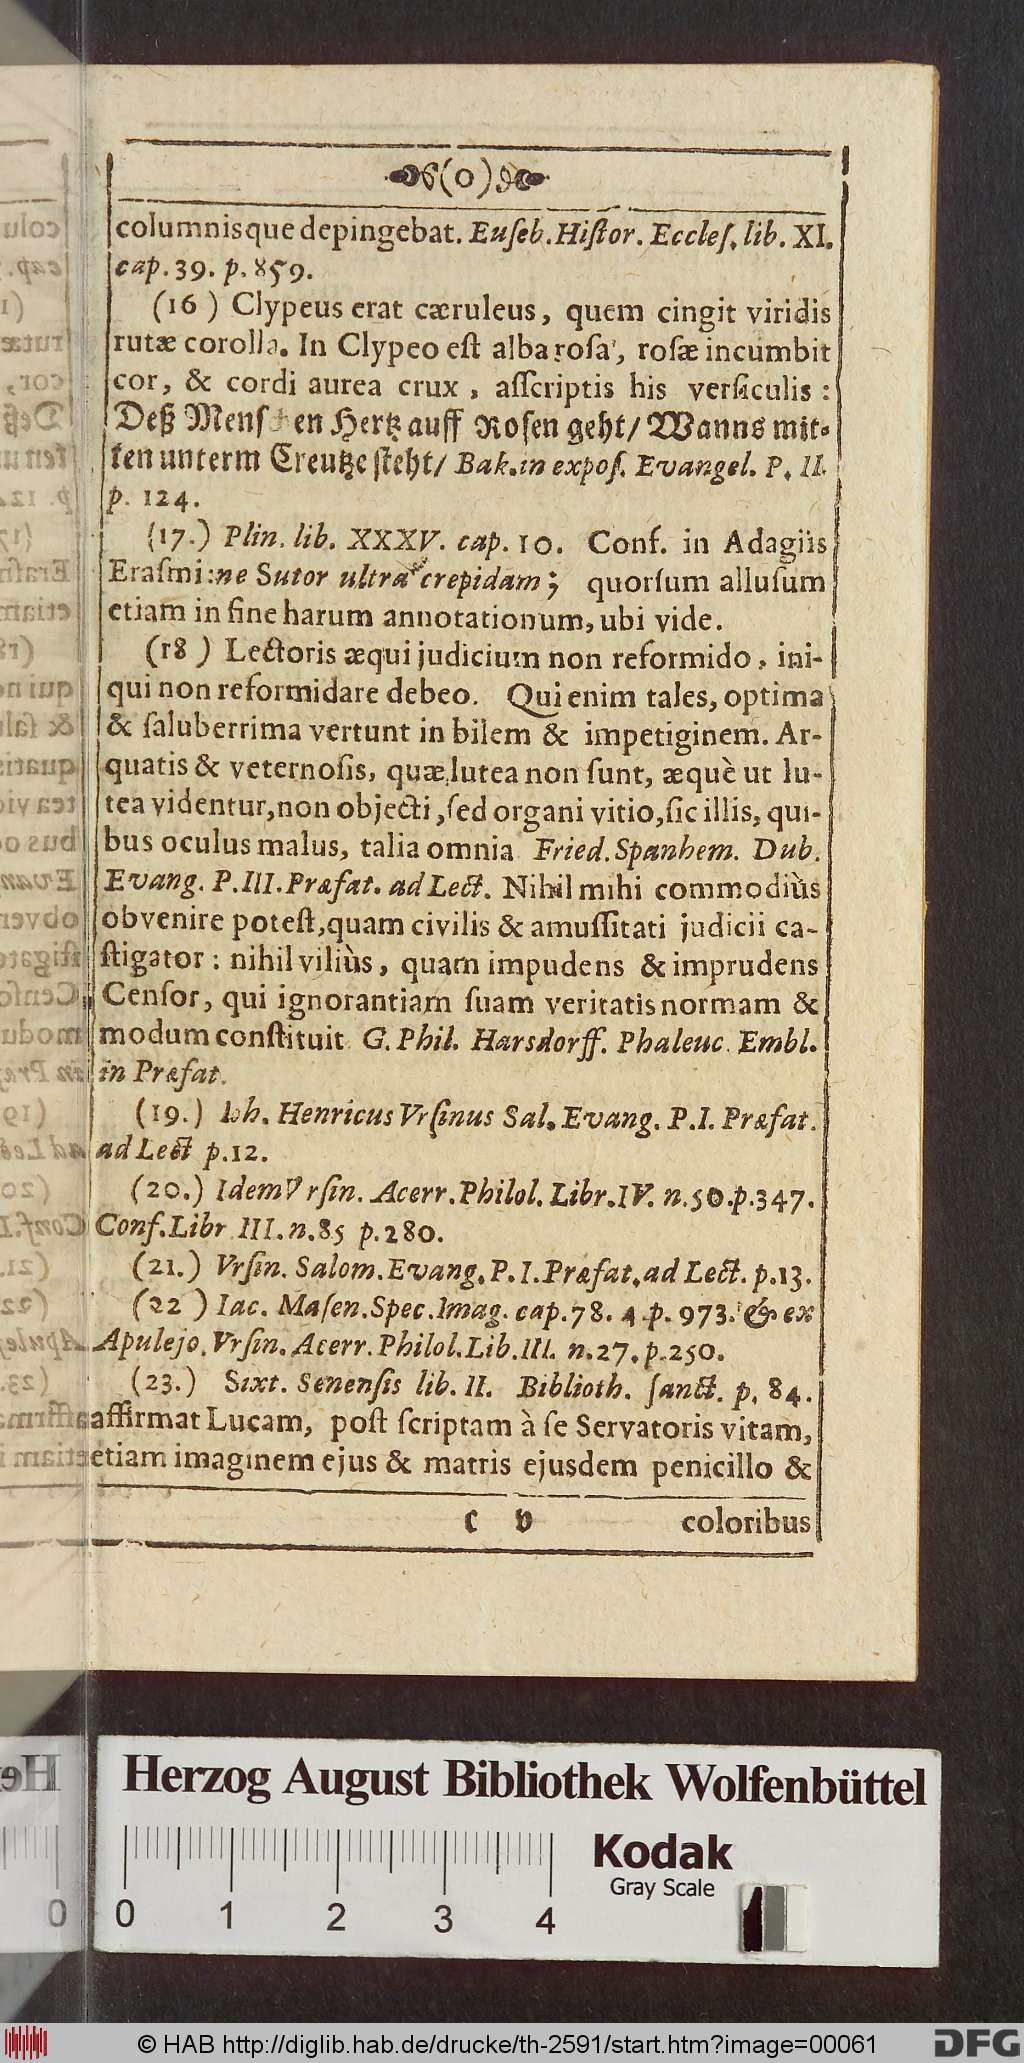 (o)
columnisque depingebat. Euſeb. Hiſtor. Eccleſ. lib. XI.
cap. 39. p. 859.
(16) Clypeus erat cæruleus, quem cingit viridis
rutæ corolla. In Clypeo eſt alba roſa, roſæ incumbit
cor, & cordi aurea crux, aſſcriptis his verſiculis:
Deß Menschen Hertz auff Roſen geht/ Wanns mit-
ten unterm Creutze ſteht/ Bak. in expoſ. Evangel. P. II.
p. 124.
(17.) Plin. lib. XXXV. cap. 10. Conf. in Adagiis
Eraſmi: ne Sutor ultra crepidam; quorſum alluſum
etiam in fine harum annotationum, ubi vide.
(18) Lectoris æqui judicium non reformido, ini-
qui non reformidare debeo. Qui enim tales, optima
& ſaluberrima vertunt in bilem & impetiginem. Ar-
quatis & veternoſis, quæ lutea non ſunt, æquè ut lu-
tea videntur, non objecti, ſed organi vitio, ſic illis, qui-
bus oculus malus, talia omnia Fried. Spanhem. Dub.
Evang. P. III. Præfat. ad Lect. Nihil mihi commodiùs
obvenire poteſt, quam civilis & amuſſitati judicii ca-
ſtigator: nihil viliùs, quam impudens & imprudens
Cenſor, qui ignorantiam ſuam veritatis normam &
modum conſtituit G. Phil. Harsdorff. Phaleuc. Embl.
in Præfat.
(19.) Joh. Henricus Vrſinus Sal. Evang. P. I. Præfat.
ad Lect p. 12.
(20.) Idem Vrſin. Acerr. Philol. Libr. IV. n. 50. p. 347.
Conf. Libr III. n. 85 p. 280.
(21.) Vrſin. Salom. Evang. P. I. Præfat. ad Lect. p. 13.
(22) Iac. Maſen. Spec. Imag. cap. 78. 4. p. 973. & ex
Apulejo. Vrſin. Acerr. Philol. Lib. III. n. 27. p. 250.
(23.) Sixt. Senenſis lib. II. Biblioth. ſanct. p. 84.
affirmat Lucam, poſt ſcriptam à ſe Servatoris vitam,
etiam imaginem ejus & matris ejusdem penicillo &
c v coloribus
Herzog August Bibliothek Wolfenbüttel
Kodak
Gray Scale
0 1 2 3 4
© HAB http://diglib.hab.de/drucke/th-2591/start.htm?image=00061
DFG